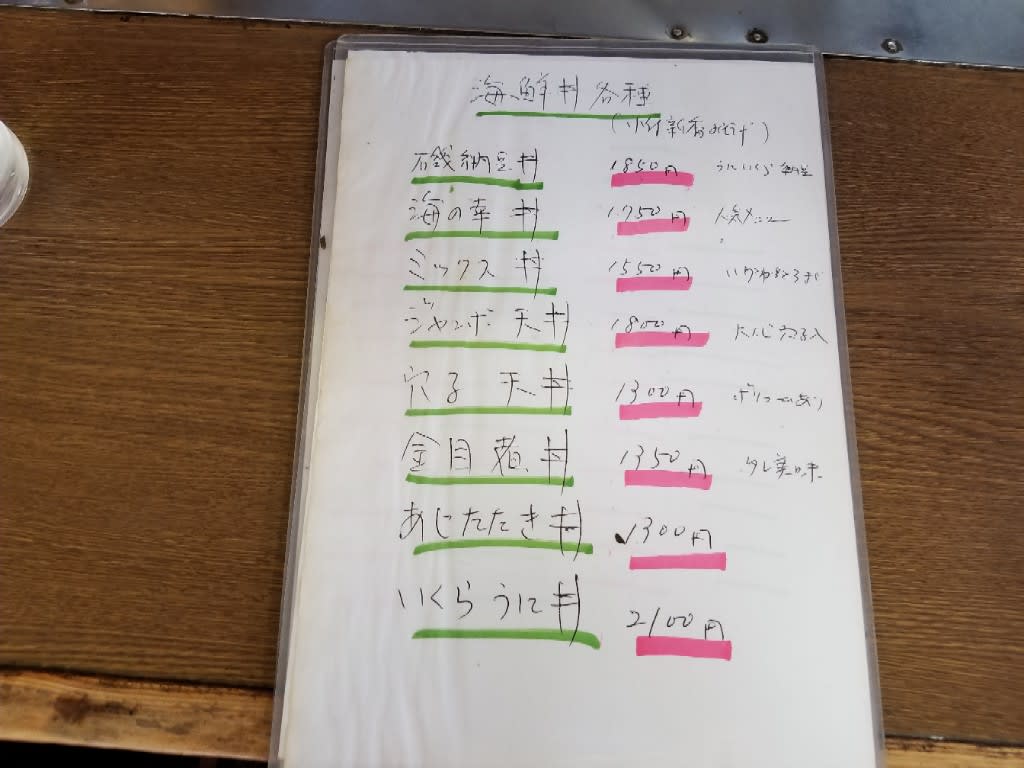 海鮮丼各種
(小付新香みそ汁)
磯納豆丼 1850円 うにいくら納豆
海の幸丼 1.750円 人気メニュー
ミックス丼 1550円
ジャンボ天丼 1800円
穴子天丼 1300円 ボリュームあり
金目煮丼 1350円 タレ美味
あじたたき丼 1300円
いくらうに丼 2100円